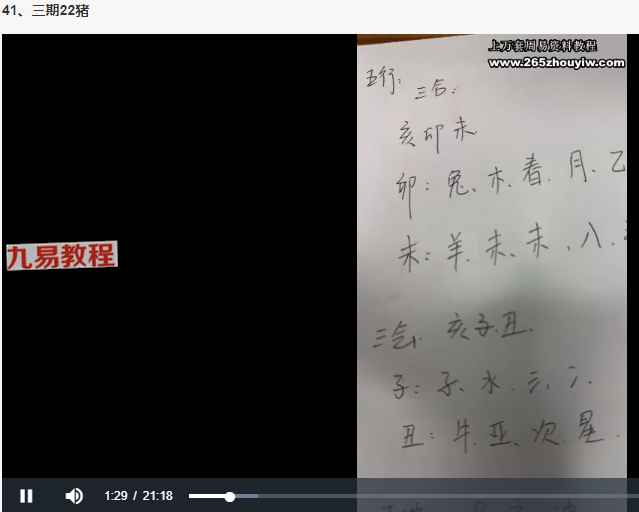 41、三期22猪
上万套周易资料教程
www.265zhouyiw.com
五行:
三合:
亥卯未
卯:兔、木、春、月、乙
九易教程
未:羊、未、未、八、
三会、亥子丑、
子:子、水、
丑:牛、亚、次、星、
1:29 / 21:18